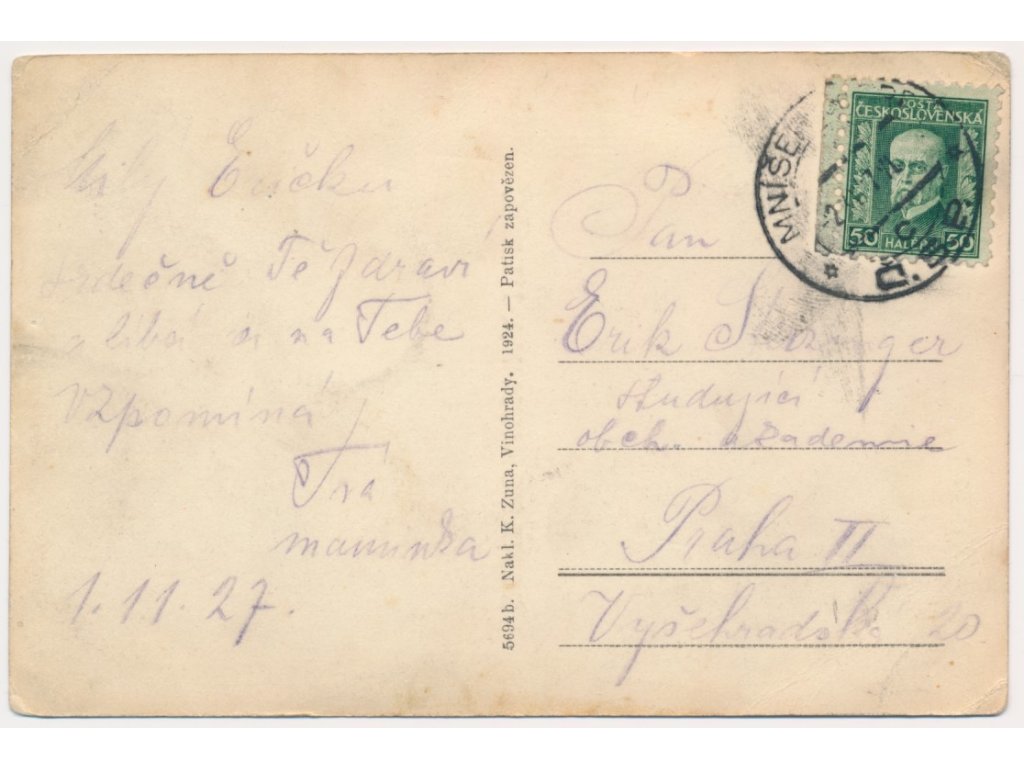 Milý Eričku
srdečně Tě zdraví
a líbá a na Tebe
vzpomíná
Tvá
maminka
1.11.27.
5694 b. Nakl. K. Zuna, Vinohrady. 1924. — Patisk zapovězen.
POŠTA
ČESKOSLOVENSKÁ
50 HALÉŘŮ 50
MNÍŠE
Pan
Erik
studující
obch. akademie
Praha II
Vyšehradská 20